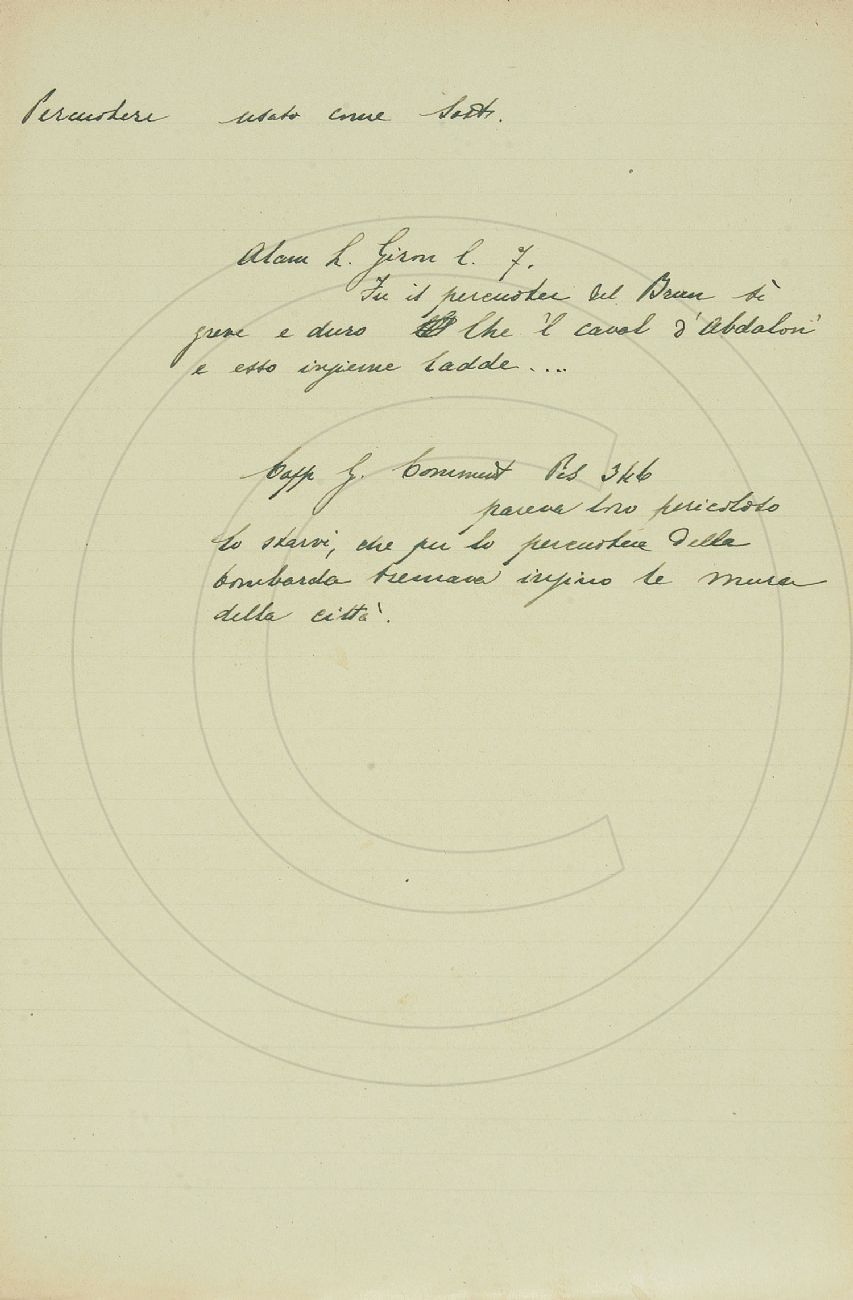 Percuotere usato come Sost.
Alam L. Giron l. 7.
Fu il percuoter del Brun sì
greve e duro Che 'l caval d'Abdalon
e esso insieme cadde....
Capp G. Comment Pis 346
pareva loro pericoloso
lo starvi, che per lo percuotere della
bombarda tremava insino le mura
della città.